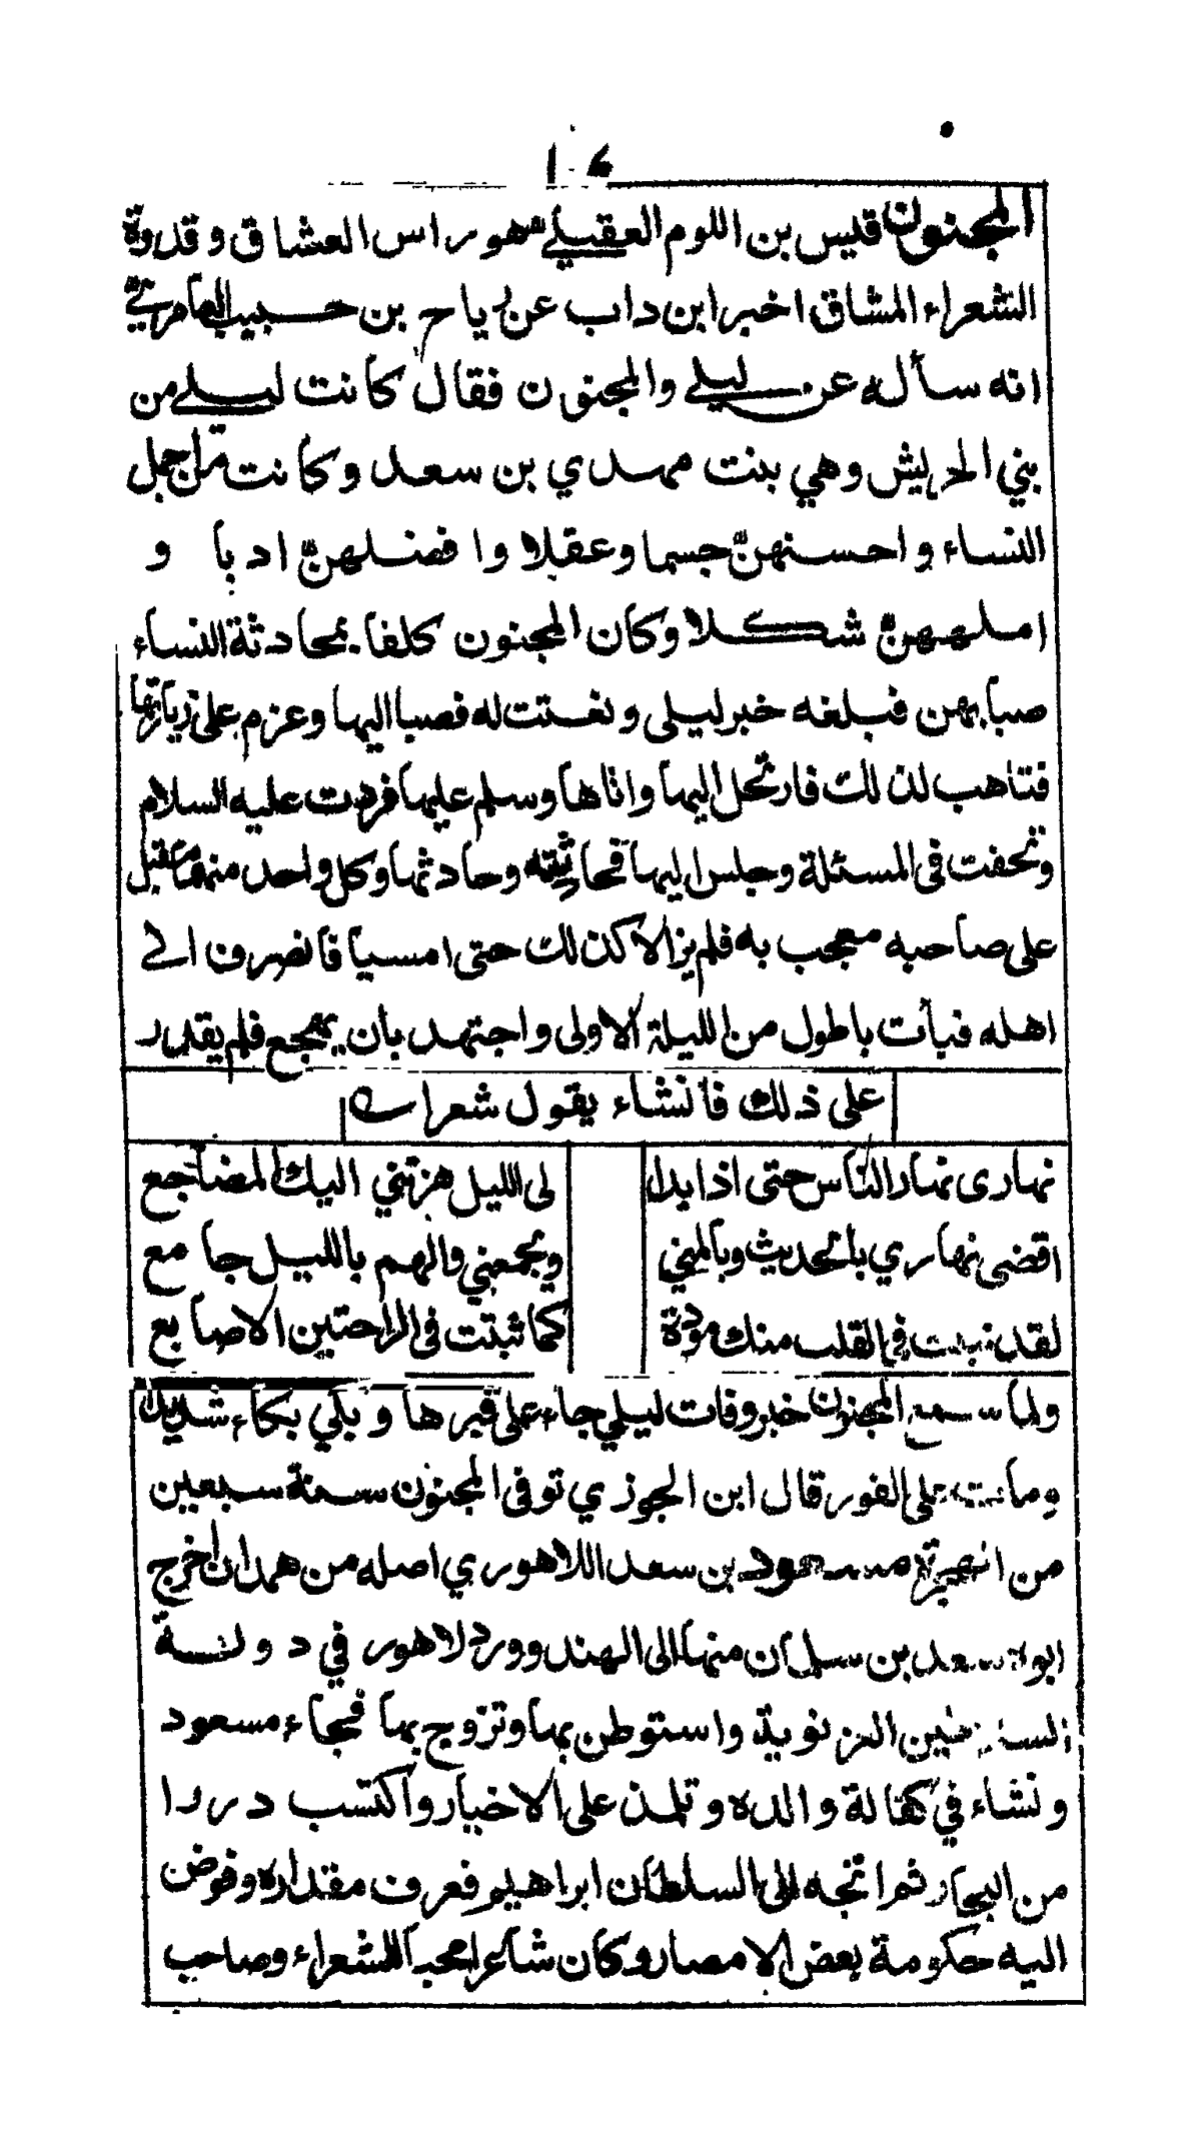 المجنون قيس بن اللوم العقيلي هو راس العشاق وقدوة
الشعراء المشاق اخبر ابن داب عن رياح بن حبيب العامري
انه سأله عن ليلي والمجنون فقال كانت ليلي من
بني الحريش وهي بنت مهدي بن سعد وكانت من اجمل
النساء واحسنهنّ جسما وعقلا وافضلهنّ ادبا و
املههنّ شكلا وكان المجنون كلفا بمحادثة النساء
صبا بهن فبلغه خبر ليلى ونعتت له فصبا اليها وعزم على زيارتها
فتاهب لذلك فارتحل اليها واتاها وسلم عليها فردت عليه السلام
وتحفت في المسئلة وجلس اليها فحادثته وحادثها وكل واحد منهما مقبل
على صاحبه معجب به فلم يزالا كذلك حتى امسيا فانصرف الي
اهله فبات باطول من الليلة الاولى واجتهد بان يهجع فلم يقدر
على ذلك فانشاء يقول شعرا
نهارى نهار الناس حتى اذا بدا لى الليل هزتني اليك المضاجع
اقضى نهاري بالحديث وبالمني ويجمعني والهم بالليل جامع
لقد نبتت في القلب منك مودة كما ثبتت في الراحتين الاصابع
ولما سمع المجنون خبر وفات ليلي جاء على قبرها وبكي بكاء شديدا
ومات على الفور قال ابن الجوزي توفى المجنون سنة سبعين
من الهجرة مسعود بن سعد اللاهوري اصله من همدان خرج
ابوه سعد بن سلمان منها الى الهند وورد لاهور في دولة
السلاطين الغزنوية واستوطن بها وتزوج بها فجاء مسعود
ونشاء في كفالة والده وتلمذ على الاخيار واكتسب دررا
من البحار ثم اتجه الى السلطان ابراهيم فعرف مقداره وفوض
اليه حكومة بعض الامصار وكان شاعرا محبا للشعراء وصاحب